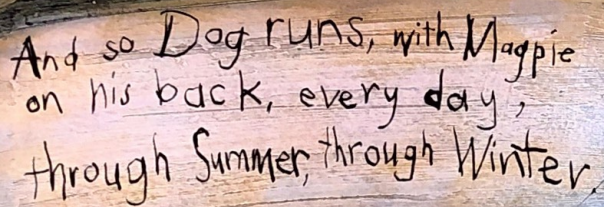 And so Dog runs, with Magpie
on his back, every day,
through Summer, through Winter.